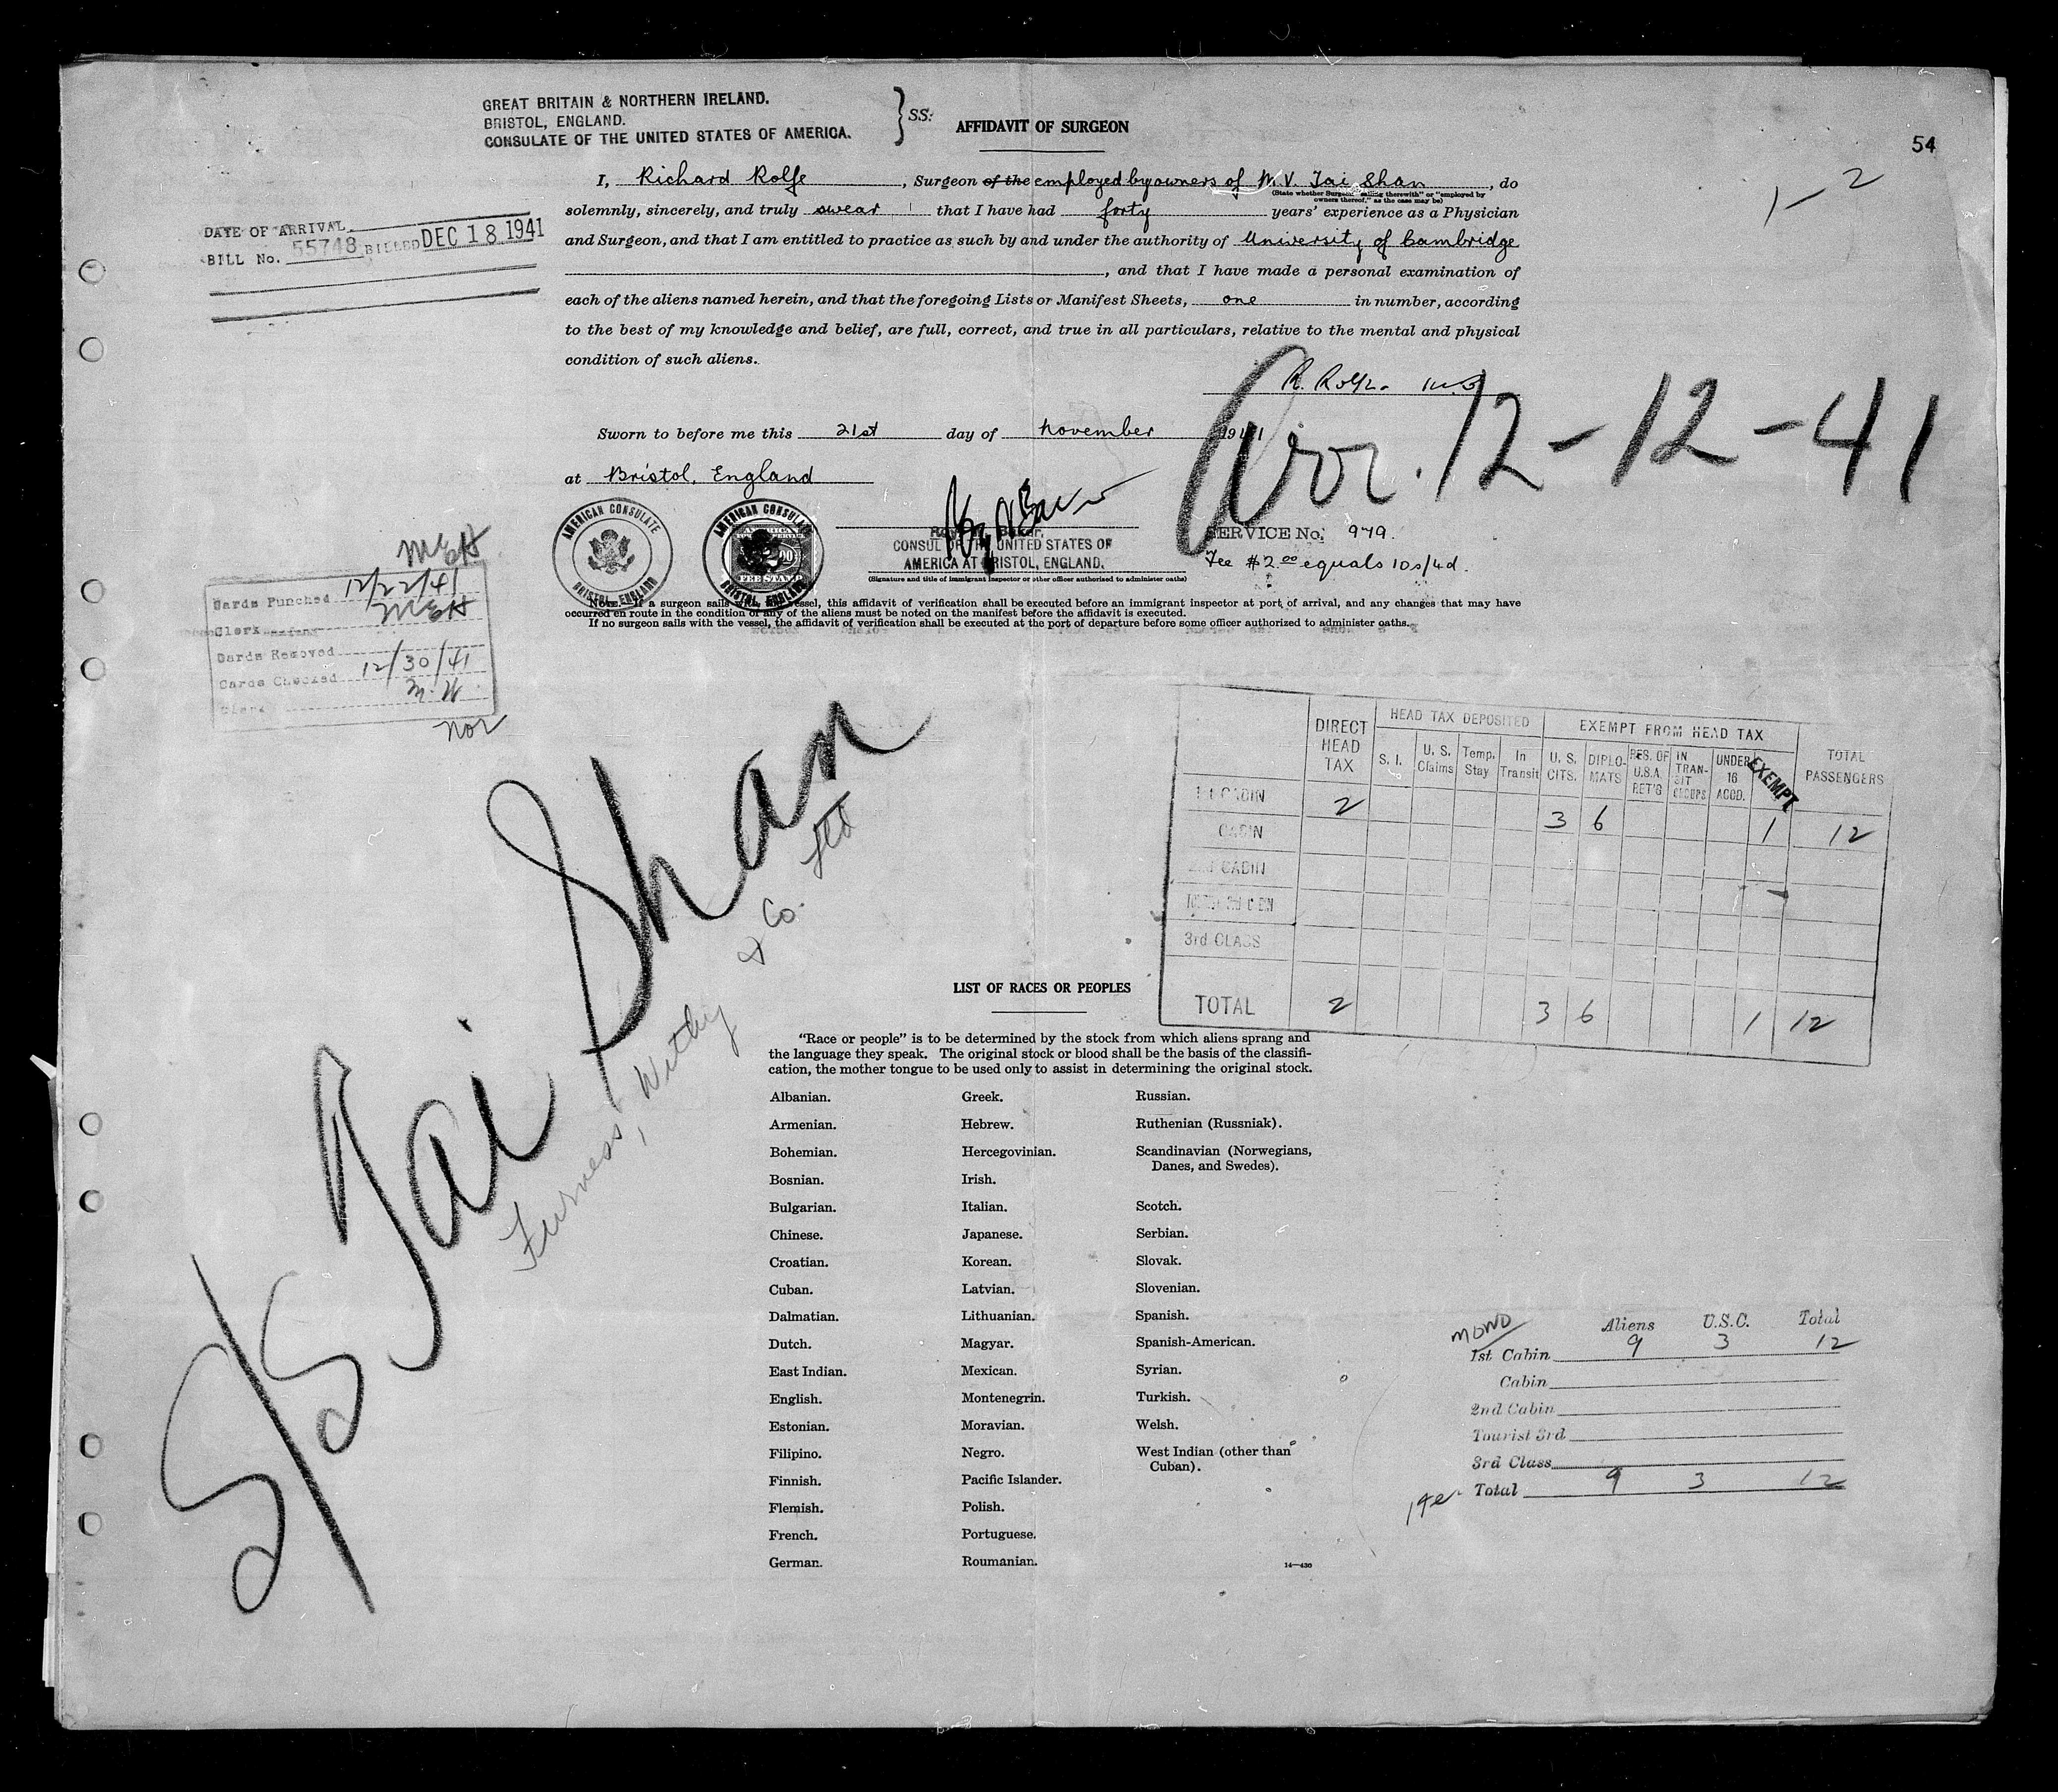 GREAT BRITAIN & NORTHERN IRELAND.
BRISTOL, ENGLAND.
CONSULATE OF THE UNITED STATES OF AMERICA.
} SS:
AFFIDAVIT OF SURGEON
54
1-2
I, Richard Rolfe, Surgeon of the employed by owners of M.V. Tai Shan, do
(State whether Surgeon "sailing therewith" or "employed by
owners thereof," as the case may be)
solemnly, sincerely, and truly swear that I have had forty years' experience as a Physician
and Surgeon, and that I am entitled to practice as such by and under the authority of University of Cambridge
, and that I have made a personal examination of
each of the aliens named herein, and that the foregoing Lists or Manifest Sheets, one in number, according
to the best of my knowledge and belief, are full, correct, and true in all particulars, relative to the mental and physical
condition of such aliens.
DATE OF ARRIVAL
BILL No. 55748 BILLED DEC 18 1941
R. Rolfe.
Sworn to before me this 21st day of November 1941
Arr. 12-12-41
at Bristol, England
AMERICAN CONSULATE
BRISTOL, ENGLAND
AMERICAN CONSULATE
FEE STAMP
BRISTOL, ENGLAND
CONSUL OF THE UNITED STATES OF
AMERICA AT BRISTOL, ENGLAND.
(Signature and title of immigrant inspector or other officer authorized to administer oaths)
SERVICE No. 979.
Fee $2.00 equals 10s/4d.
Note.—If a surgeon sails with the vessel, this affidavit of verification shall be executed before an immigrant inspector at port of arrival, and any changes that may have
occurred en route in the condition of any of the aliens must be noted on the manifest before the affidavit is executed.
If no surgeon sails with the vessel, the affidavit of verification shall be executed at the port of departure before some officer authorized to administer oaths.
Cards Punched 12/22/41
Clerk
Cards Removed
Cards Checked 12/30/41
Clerk M.H
nor
S/S Tai Shan
Furness, Withy & Co. Ltd
DIRECT HEAD TAX
HEAD TAX DEPOSITED
S. I.
U. S. Claims
Temp. Stay
In Transit
EXEMPT FROM HEAD TAX
U. S. CITS.
DIPLO-MATS
RES. OF U.S.A. RET'G
IN TRAN-SIT GROUPS
UNDER 16 ACCD.
EXEMPT
TOTAL PASSENGERS
1st CABIN 2 3 6 1 12
CABIN
2nd CABIN
3rd CLASS
TOTAL 2 3 6 1 12
LIST OF RACES OR PEOPLES
"Race or people" is to be determined by the stock from which aliens sprang and
the language they speak. The original stock or blood shall be the basis of the classifi-
cation, the mother tongue to be used only to assist in determining the original stock.
Albanian.
Armenian.
Bohemian.
Bosnian.
Bulgarian.
Chinese.
Croatian.
Cuban.
Dalmatian.
Dutch.
East Indian.
English.
Estonian.
Filipino.
Finnish.
Flemish.
French.
German.
Greek.
Hebrew.
Hercegovinian.
Irish.
Italian.
Japanese.
Korean.
Latvian.
Lithuanian.
Magyar.
Mexican.
Montenegrin.
Moravian.
Negro.
Pacific Islander.
Polish.
Portuguese.
Roumanian.
Russian.
Ruthenian (Russniak).
Scandinavian (Norwegians,
Danes, and Swedes).
Scotch.
Serbian.
Slovak.
Slovenian.
Spanish.
Spanish-American.
Syrian.
Turkish.
Welsh.
West Indian (other than
Cuban).
14—430
Aliens U.S.C. Total
1st Cabin 9 3 12
Cabin
2nd Cabin
Tourist 3rd
3rd Class
Total 9 3 12